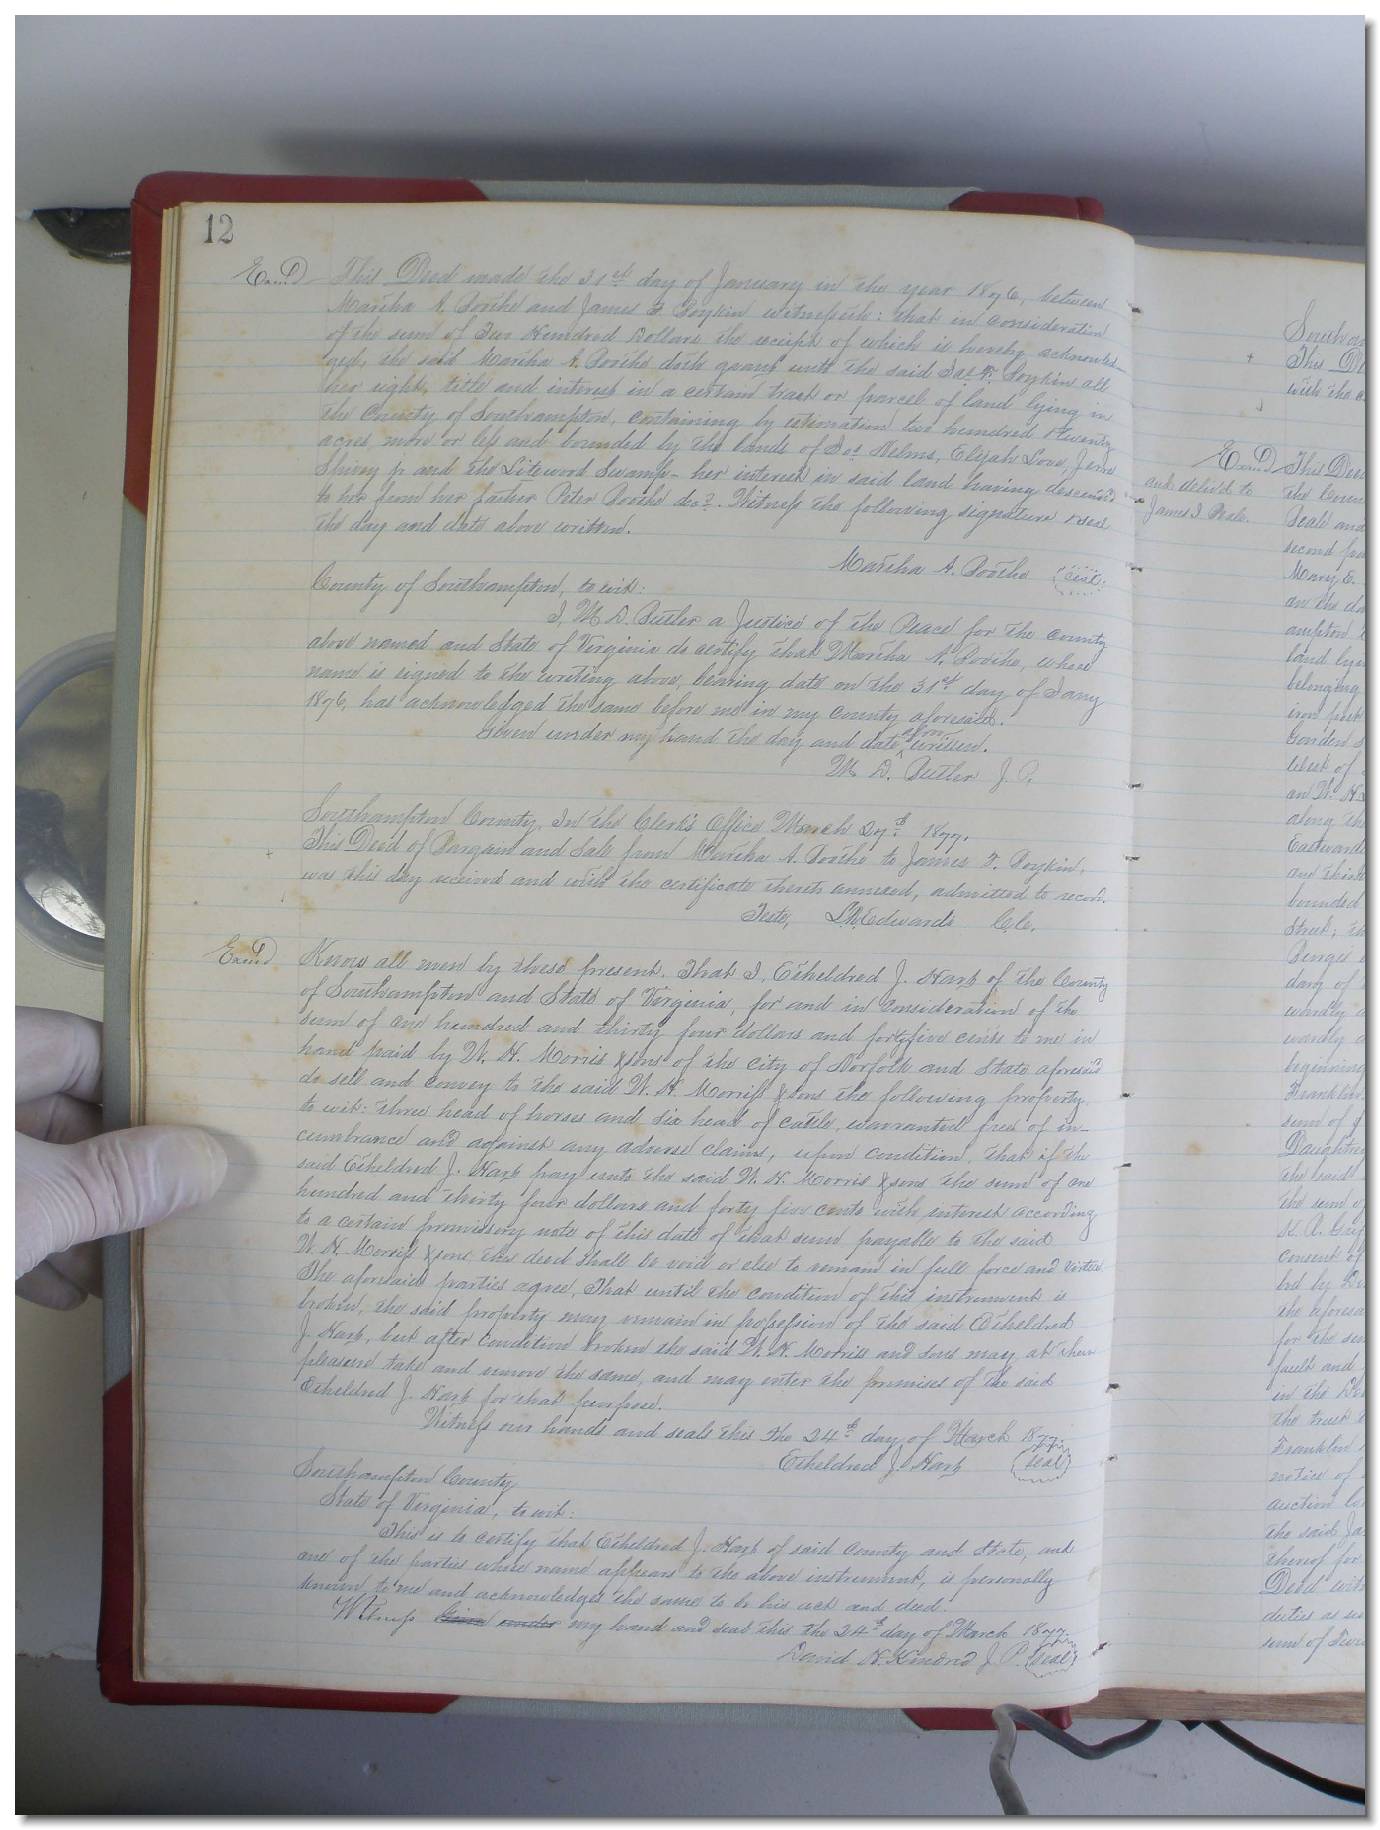 12
Exmd
This Deed made the 31st day of January in the year 1876, between
Martha A. Boothe and James F. Boykin witnesseth: that in consideration
of the sum of Two Hundred Dollars the receipt of which is hereby acknowled-
ged, the said Martha A. Boothe doth grant unto the said Jas F. Boykin all
her right, title and interest in a certain tract or parcel of land lying in
the County of Southampton, containing by estimation two hundred & twenty
acres more or less and bounded by the lands of Jos Helms, Elijah Love, Jerre
Shivry jr and the Litewood Swamp - her interest in said land having descended
to her from her father Peter Boothe decd. Witness the following signature & seal
the day and date above written.
Martha A. Boothe Seal
County of Southampton, to wit:
I, M D. Butler a Justice of the Peace for the County
above named and State of Virginia do certify that Martha A. Boothe, whose
name is signed to the writing above, bearing date on the 31st day of Jany
1876, has acknowledged the same before me in my county aforesaid.
Given under my hand the day and date afore written.
M D. Butler J. P.
Southampton County, In the Clerk's Office March 27th 1877.
This Deed of Bargain and Sale from Martha A. Boothe to James F. Boykin,
was this day received and with the certificate thereto annexed, admitted to record.
Teste, L R Edwards C. C.
Exmd
Know all men by these present. That I, Etheldred J. Harp of the County
of Southampton and State of Virginia, for and in consideration of the
sum of one hundred and thirty four dollars and fortyfive cents to me in
hand paid by W. H. Morris & sons of the city of Norfolk and State aforesaid
do sell and convey to the said W. H Morriss & sons the following property.
to wit: three head of horses and six head of cattle, warranted free of in-
cumbrance and against any adverse claims, upon condition, that if the
said Etheldred J. Harp pay unto the said W. H. Morris & sons the sum of one
hundred and thirty four dollars and forty five cents with interest according
to a certain promissory note of this date of that sum payable to the said
W. H. Morriss & sons this deed shall be void or else to remain in full force and virtue.
The aforesaid parties agree, That until the condition of this instrument is
broken, the said property may remain in possession of the said Etheldred
J. Harp, but after condition broken the said W. H. Morriss and sons may at their
pleasure take and remove the same, and may enter the premises of the said
Etheldred J. Harp for that purpose.
Witness our hands and seals this the 24th day of March 1877.
Etheldred J. Harp Seal
Southampton County
State of Virginia, to wit:
This is to certify that Etheldred J. Harp of said County and State, and
one of the parties whose name appears to the above instrument, is personally
known to me and acknowledges the same to be his act and deed.
Witness Given under my hand and seal this the 24th day of March 1877.
David H. Kindred J. P. Seal
This De
with the
Exmd This Deed
and deliv'd to
James I. Beale.
the Coun
Beale and
second par
Mary E.
on the da
ampton
land lyin
belonging
West of
along the
Eastward
bounded
Street; th
beginning
Franklin
sum of
Daughtre
the said
the sum of
consent of
the aforesa
for the sum
in the
the trust
Franklin
notice of
auction
the said Ja
thereof for
Deed with
duties as
sum of Two